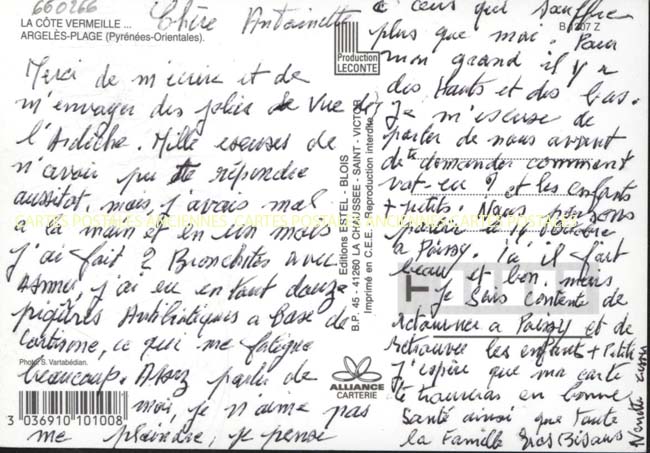 660266
LA CÔTE VERMEILLE ...
ARGELÈS-PLAGE (Pyrénées-Orientales).
Chère Antoinette
Merci de m'écrire et de
m'envoyer des jolies de vue de
l'Ardèche. Mille excuses de
n'avoir pu te répondre
aussitot. mais j'avais mal
a la main et en un mois
j'ai fait 2 Bronchites avec
Asthme, j'ai eu en tout douze
piqûres Antibiotiques a base de
Cortisone, ce qui me fatigue
beaucoup. Assez parler de
moi, je n'aime pas
me plaindre, je pense
a ceux qui souffre
plus que moi. Pour
mon grand il y a
des Hauts et des bas.
Je m'escuse de
parler de nous avant
de te demander comment
vat-en ? et les enfants
+ petits. Nous
a Poissy. Là il fait
beau et bon. mais
je suis contente de
retourner a Poissy et de
retrouver les enfants + Petits
J'espère que ma carte
te trouveras en bonne
Santé ainsi que toute
la Famille Gros Bisous
B 1207 Z
Production
LECONTE
Editions ESTEL - BLOIS
B.P. 45 - 41260 LA CHAUSSEE - SAINT - VICTOR
Imprimé en C.E.E. Reproduction interdite
CARTES POSTALES ANCIENNES CARTES POSTALES ANCIENNES CARTES POSTALES ANCIENNES
Photo: S. Vartabédian.
3 036910 101008
ALLIANCE
CARTERIE